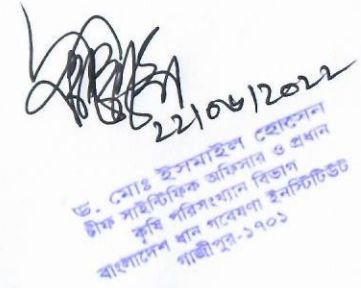 22/06/2022
ড. মোঃ ইসমাইল হোসেন
চীফ সাইন্টিফিক অফিসার ও প্রধান
কৃষি পরিসংখ্যান বিভাগ
বাংলাদেশ ধান গবেষণা ইনস্টিটিউট
গাজীপুর-১৭০১